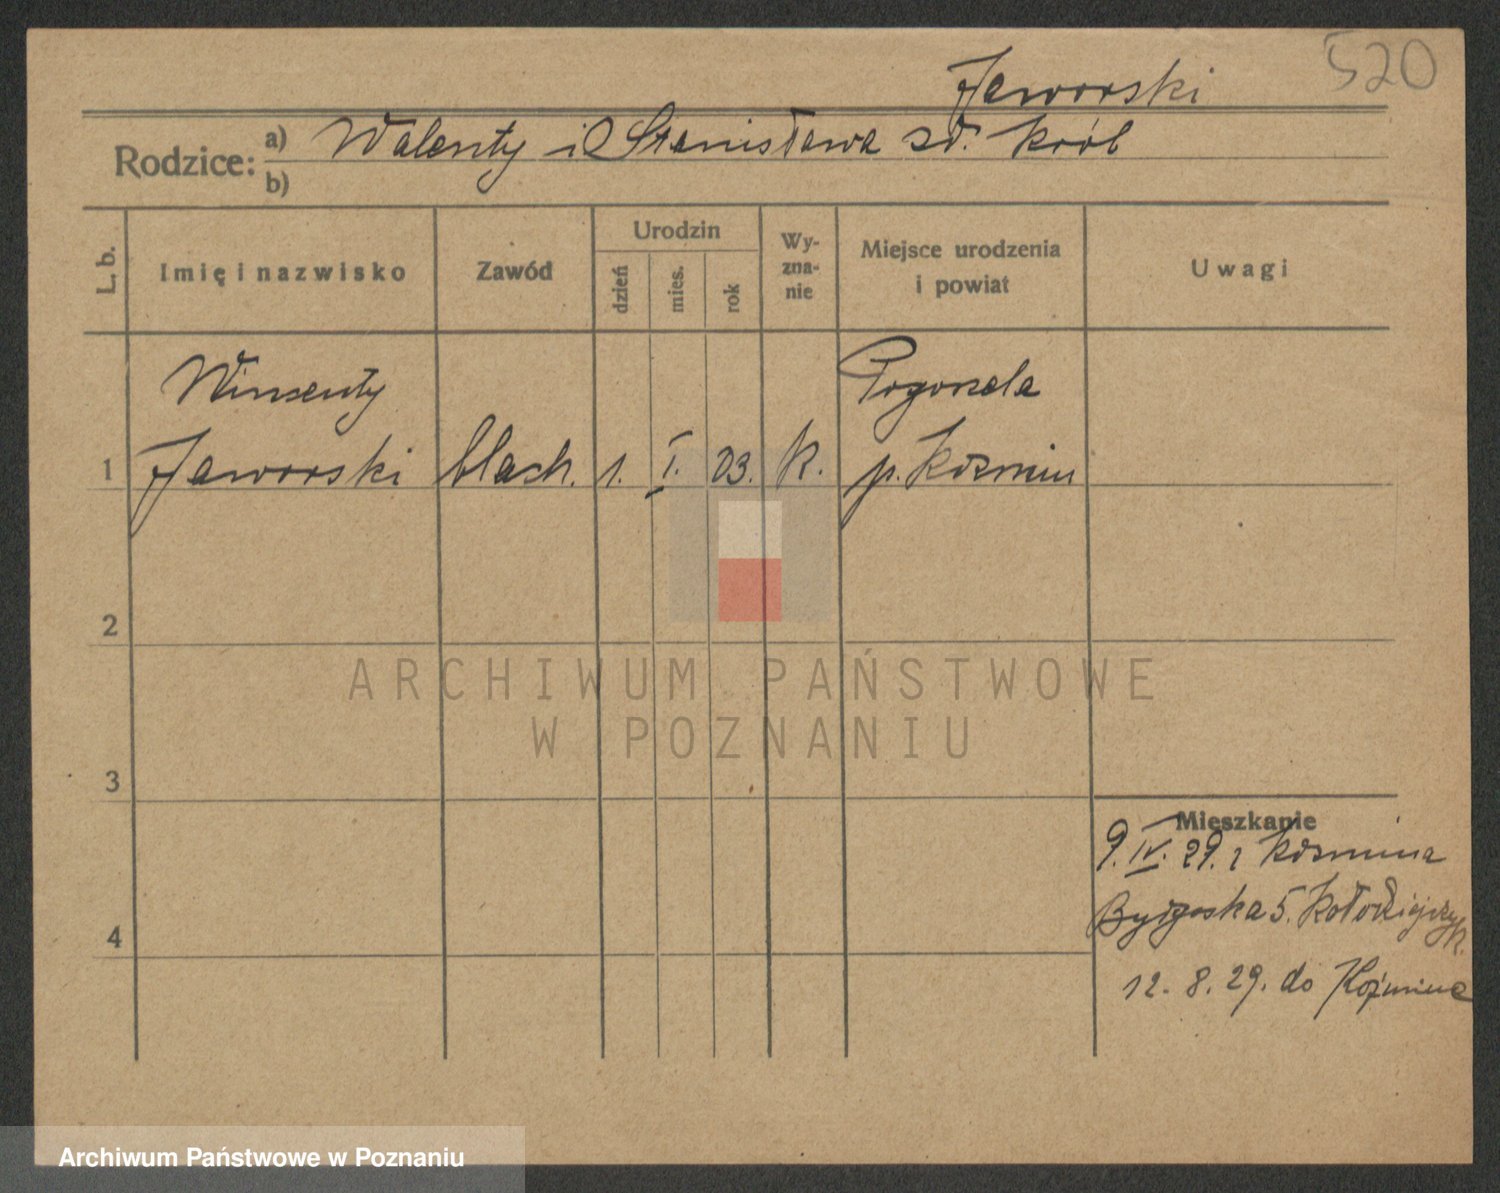 520
Jaworski
Rodzice: a) Walenty i Stanisława zd. Król
b)
L. b.
Imię i nazwisko
Zawód
Urodzin
dzień
mies.
rok
Wy-
zna-
nie
Miejsce urodzenia
i powiat
Uwagi
Wincenty
Pogorzela
1 Jaworski blach. 1. I. 03. k. p. Kozmin
2
ARCHIWUM PAŃSTWOWE
W POZNANIU
3
Mieszkanie
9. IV. 29. z Kozmina
Bydgoska 5. Kołodziejczyk.
4
12. 8. 29. do Koźmina
Archiwum Państwowe w Poznaniu